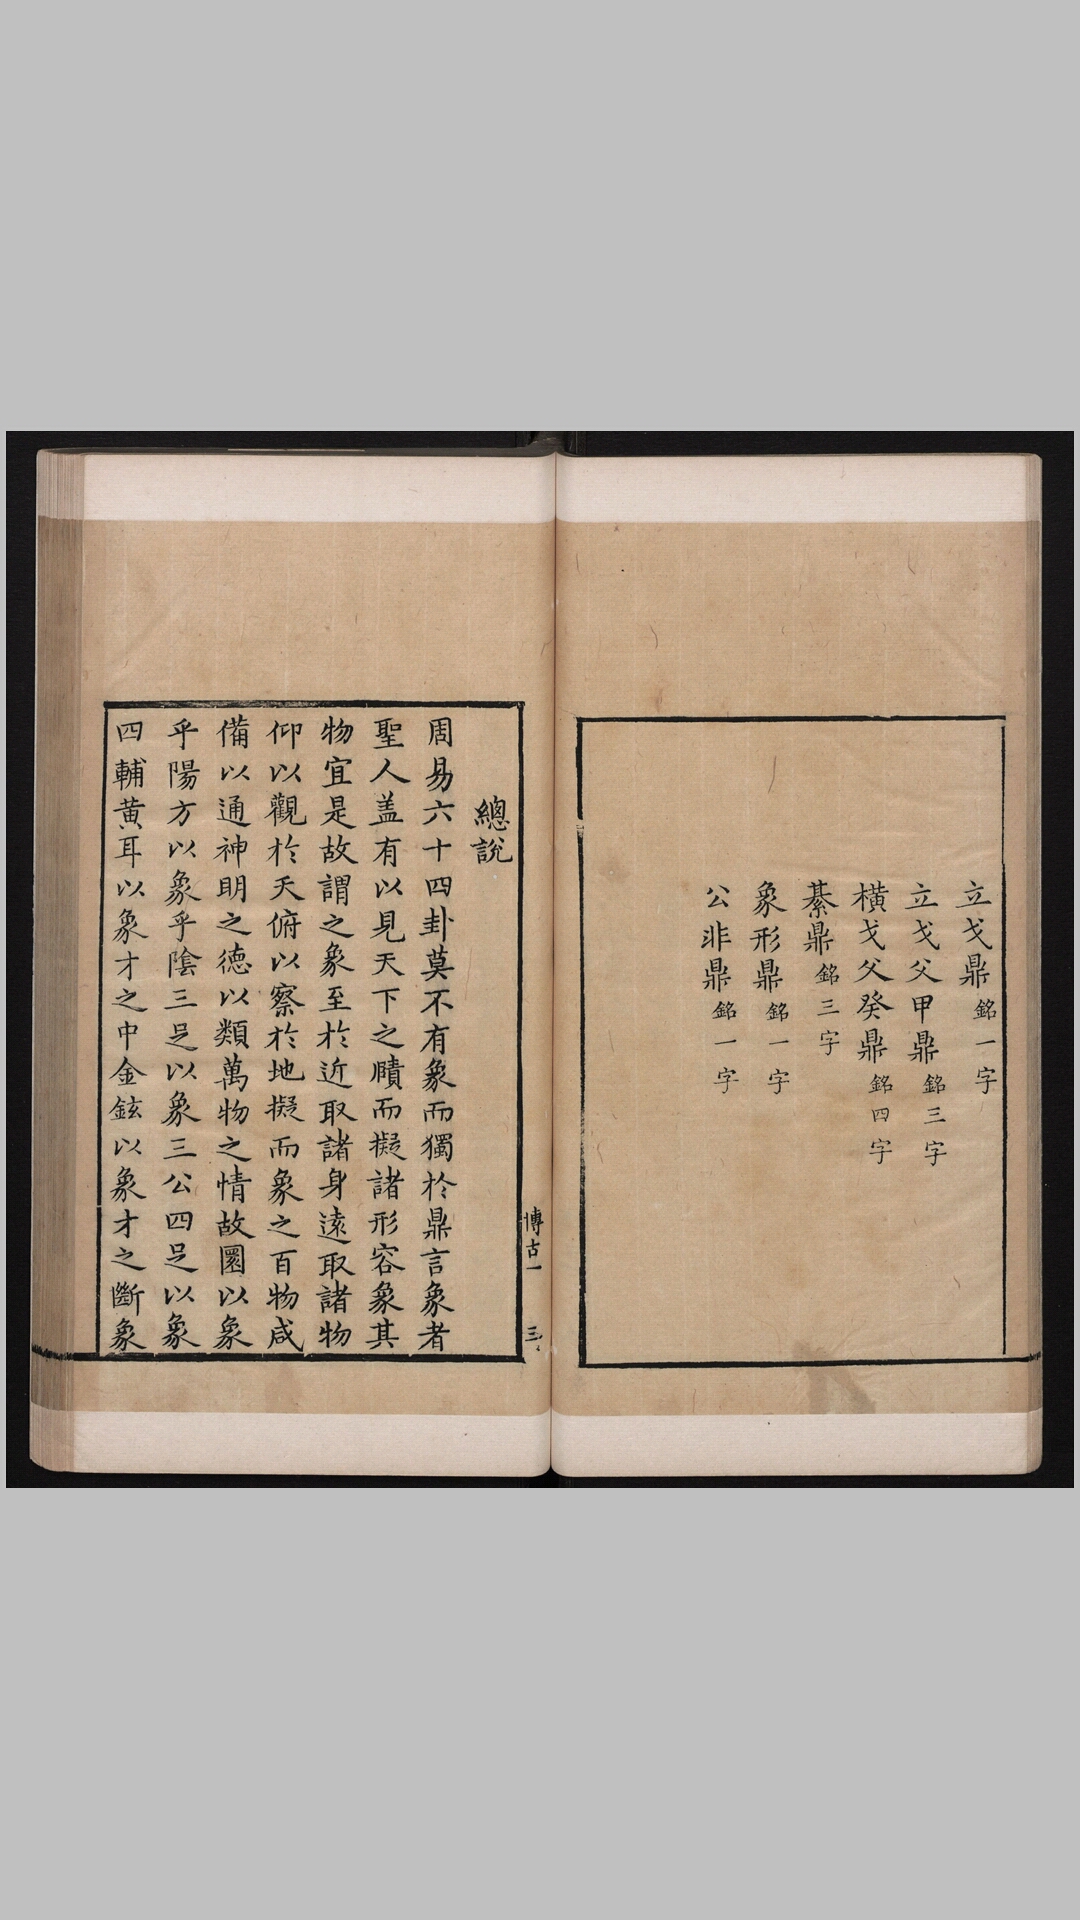 立戈鼎銘一字
立戈父甲鼎銘三字
橫戈父癸鼎銘四字
綦鼎銘三字
象形鼎銘一字
公非鼎銘一字
博古一
三
總說
周易六十四卦莫不有象而獨於鼎言象者
聖人盖有以見天下之賾而擬諸形容象其
物宜是故謂之象至於近取諸身遠取諸物
仰以觀於天俯以察於地擬而象之百物咸
備以通神明之德以類萬物之情故圜以象
乎陽方以象乎陰三足以象三公四足以象
四輔黃耳以象才之中金鉉以象才之斷象